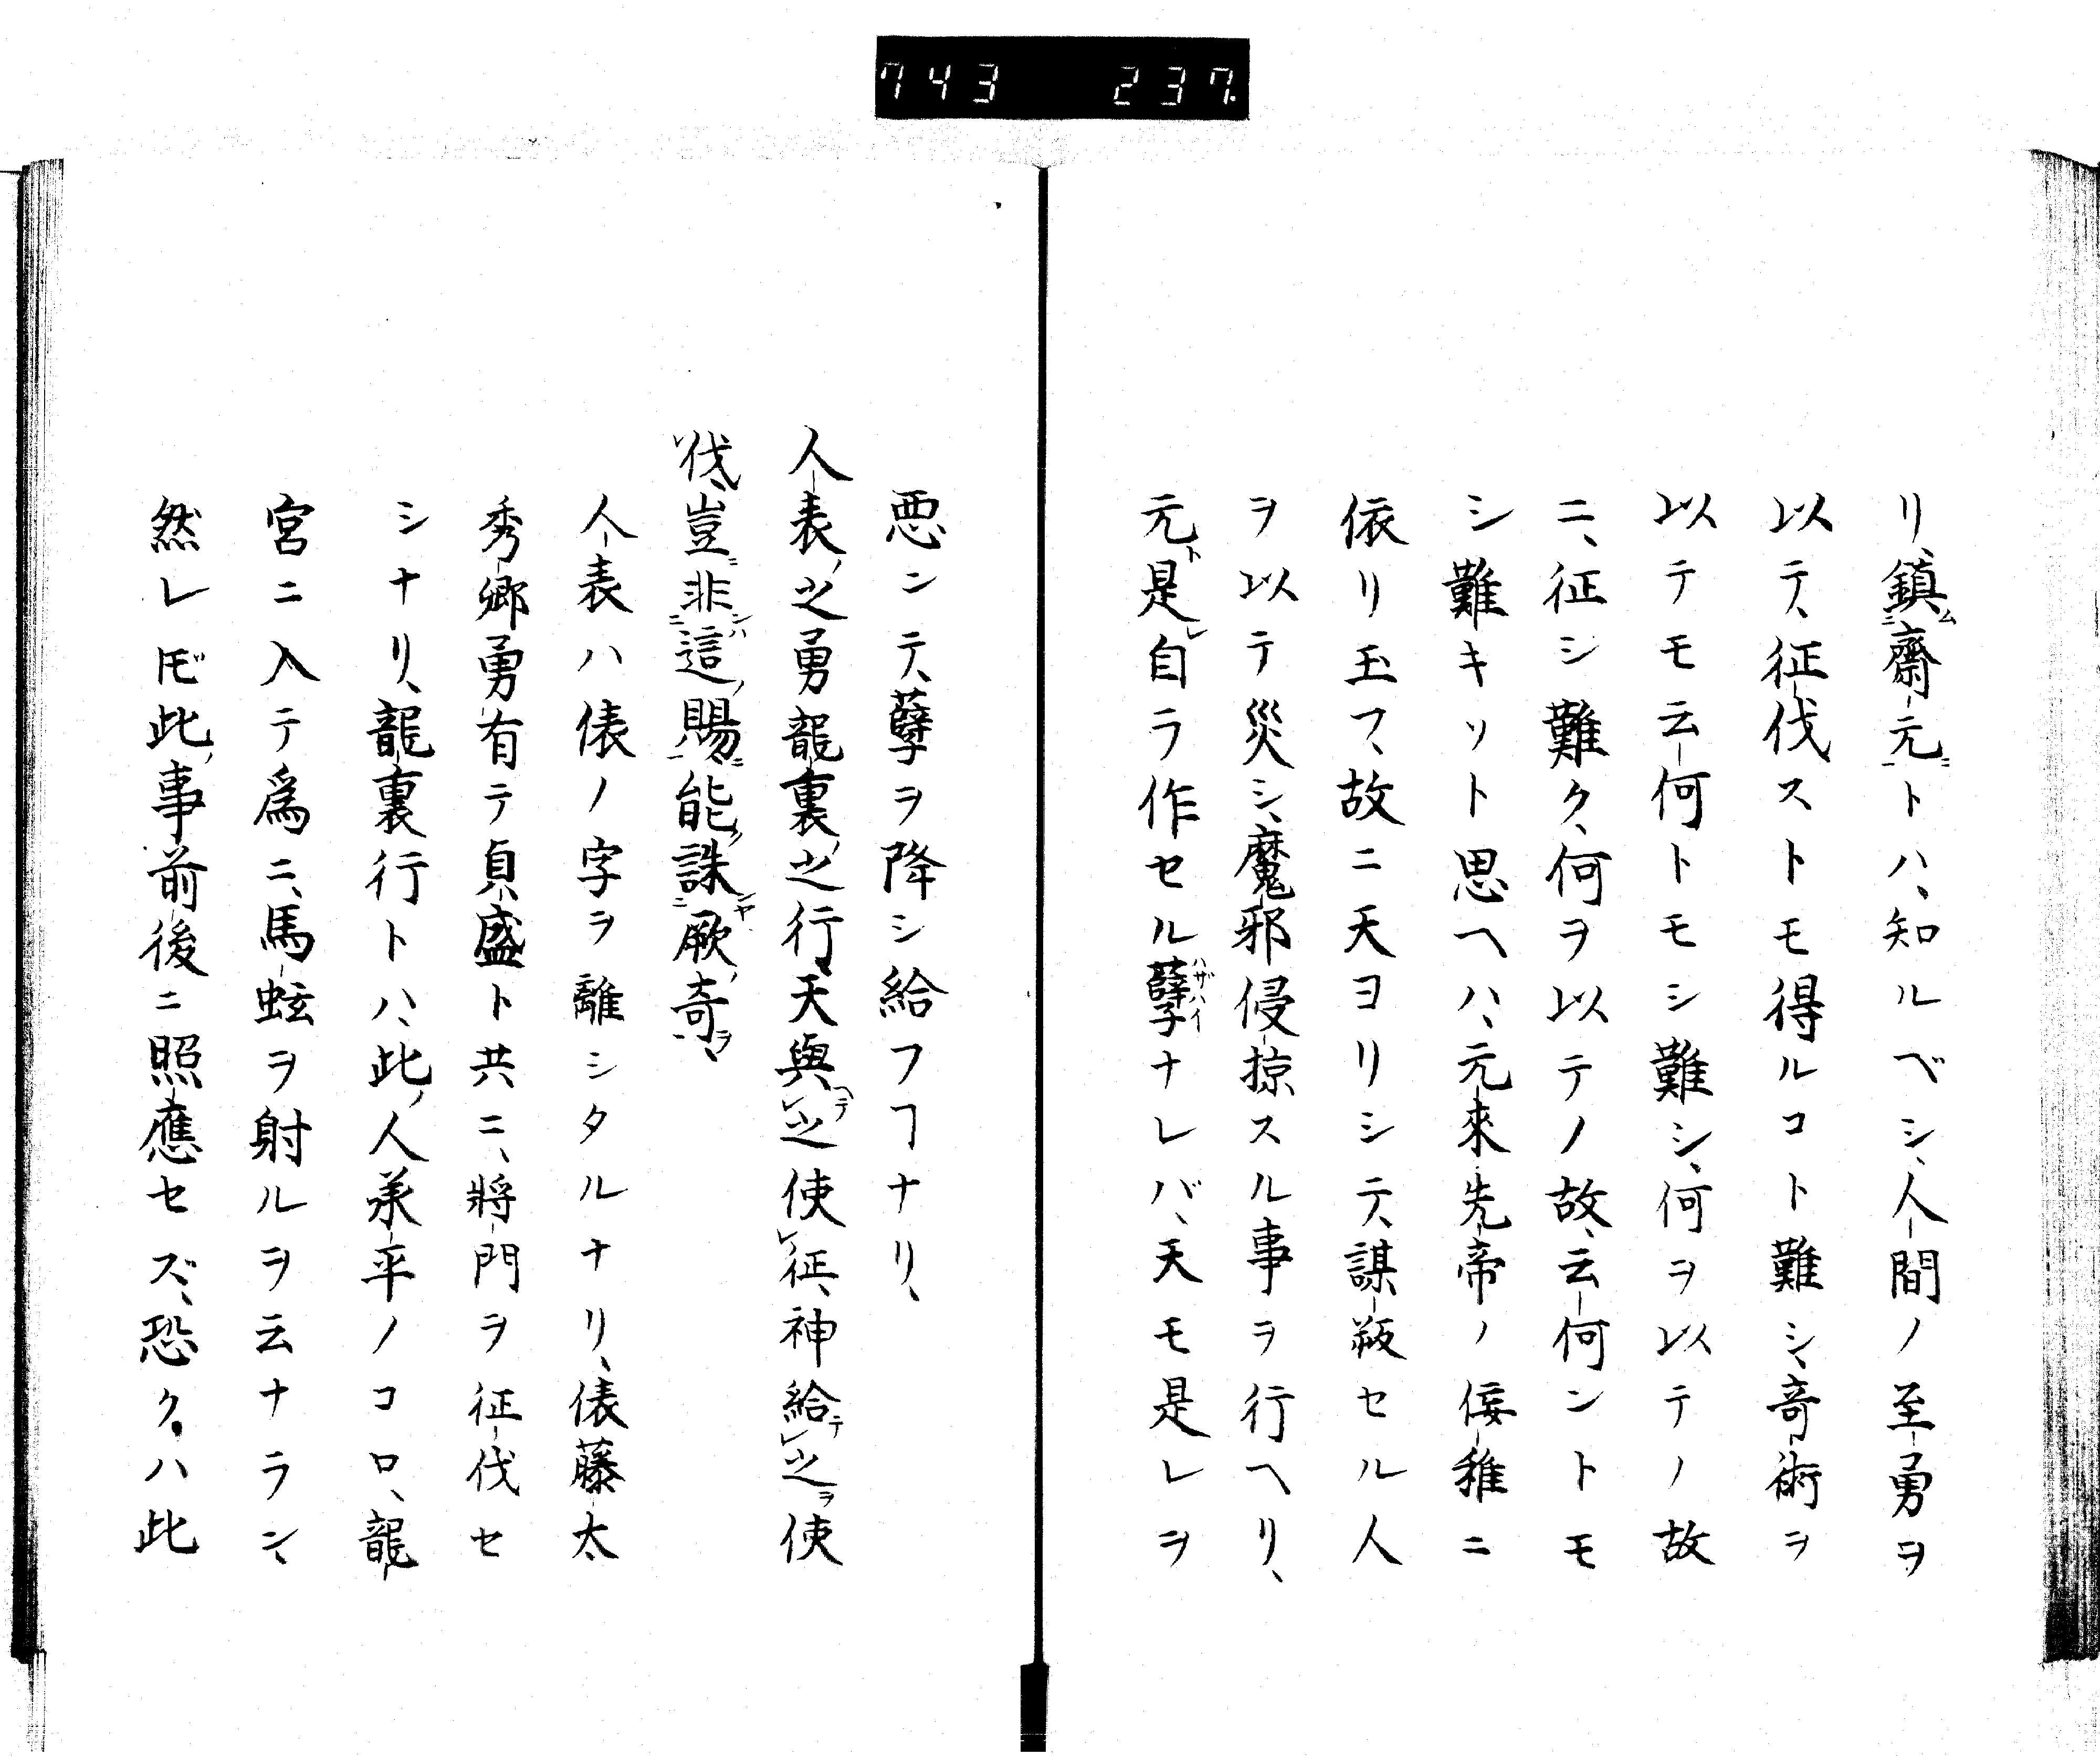 743 237
リ、鎮齋元トハ、知ルベシ、人間ノ至勇ヲ
以テ、征伐ストモ得ルコト難シ、奇術ヲ
以テモ云何トモシ難シ、何ヲ以テノ故
ニ、征シ難ク、何ヲ以テノ故、云何ントモ
シ難キソト思ヘハ、元来先帝ノ倭稚ニ
依リ玉フ、故ニ天ヨリシテ、謀叛セル人
ヲ以テ災シ、魔邪侵掠スル事ヲ行ヘリ、
元是レ自ラ作セル孽ナレバ、天モ是レヲ
悪ンテ、孽ヲ降シ給フヿナリ、
人表之勇龍裏之行、天與之使征、神給之使
伐、豈非這賜能誅厥奇、
人表ハ俵ノ字ヲ離シタルナリ、俵藤太
秀郷勇有テ貞盛ト共ニ、將門ヲ征伐セ
シナリ、龍裏行トハ、此人承平ノコロ、龍
宮ニ入テ爲ニ、馬蚿ヲ射ルヲ云ナラン、
然レ𪜈此事前後ニ照應セズ、恐クハ此